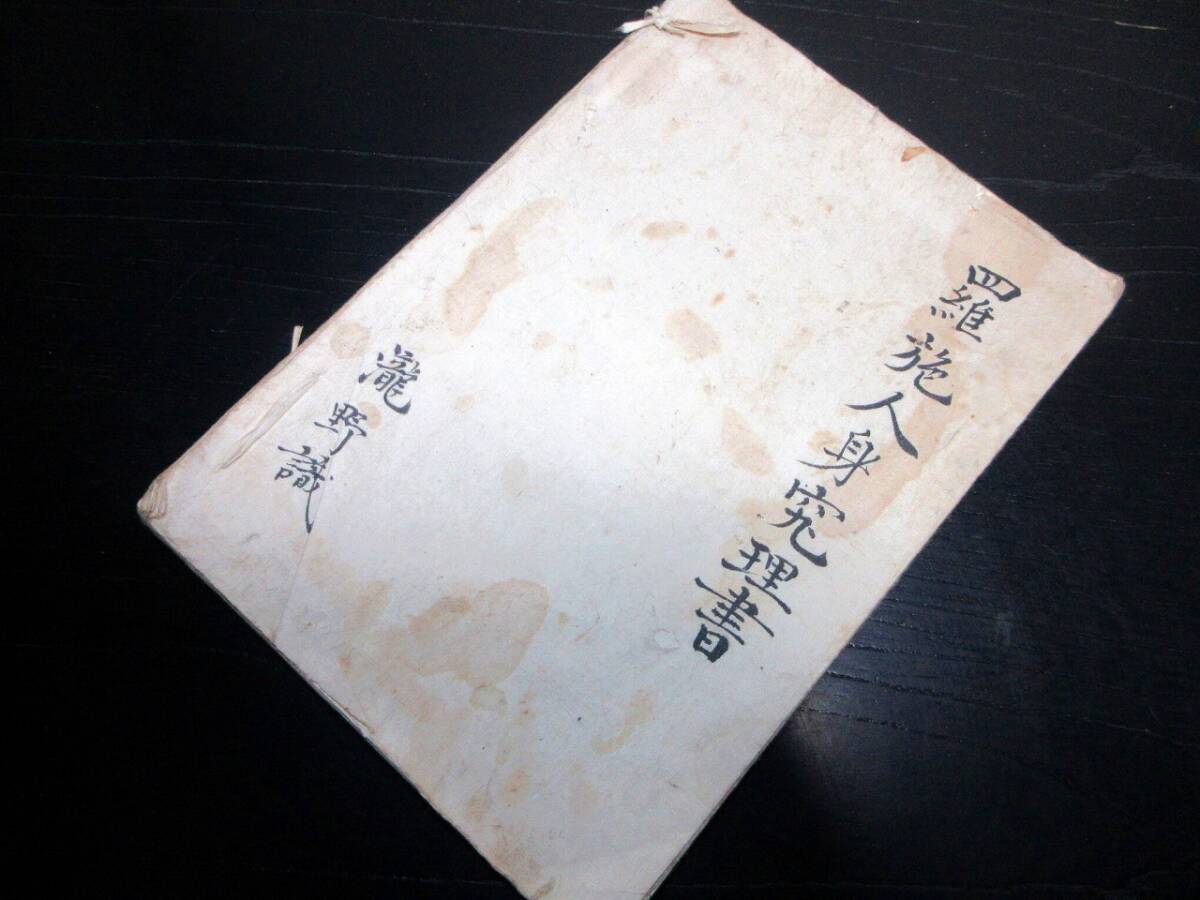 羅施人身究理書
瀧野識